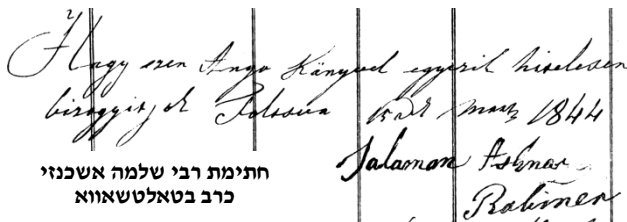 Hogy ezen Anya Könyvel egyezik hitelesen
Tolcsva 15dik 1844
Salamon
Rabiner
חתימת רבי שלמה אשכנזי
כרב בטאלטשאווא